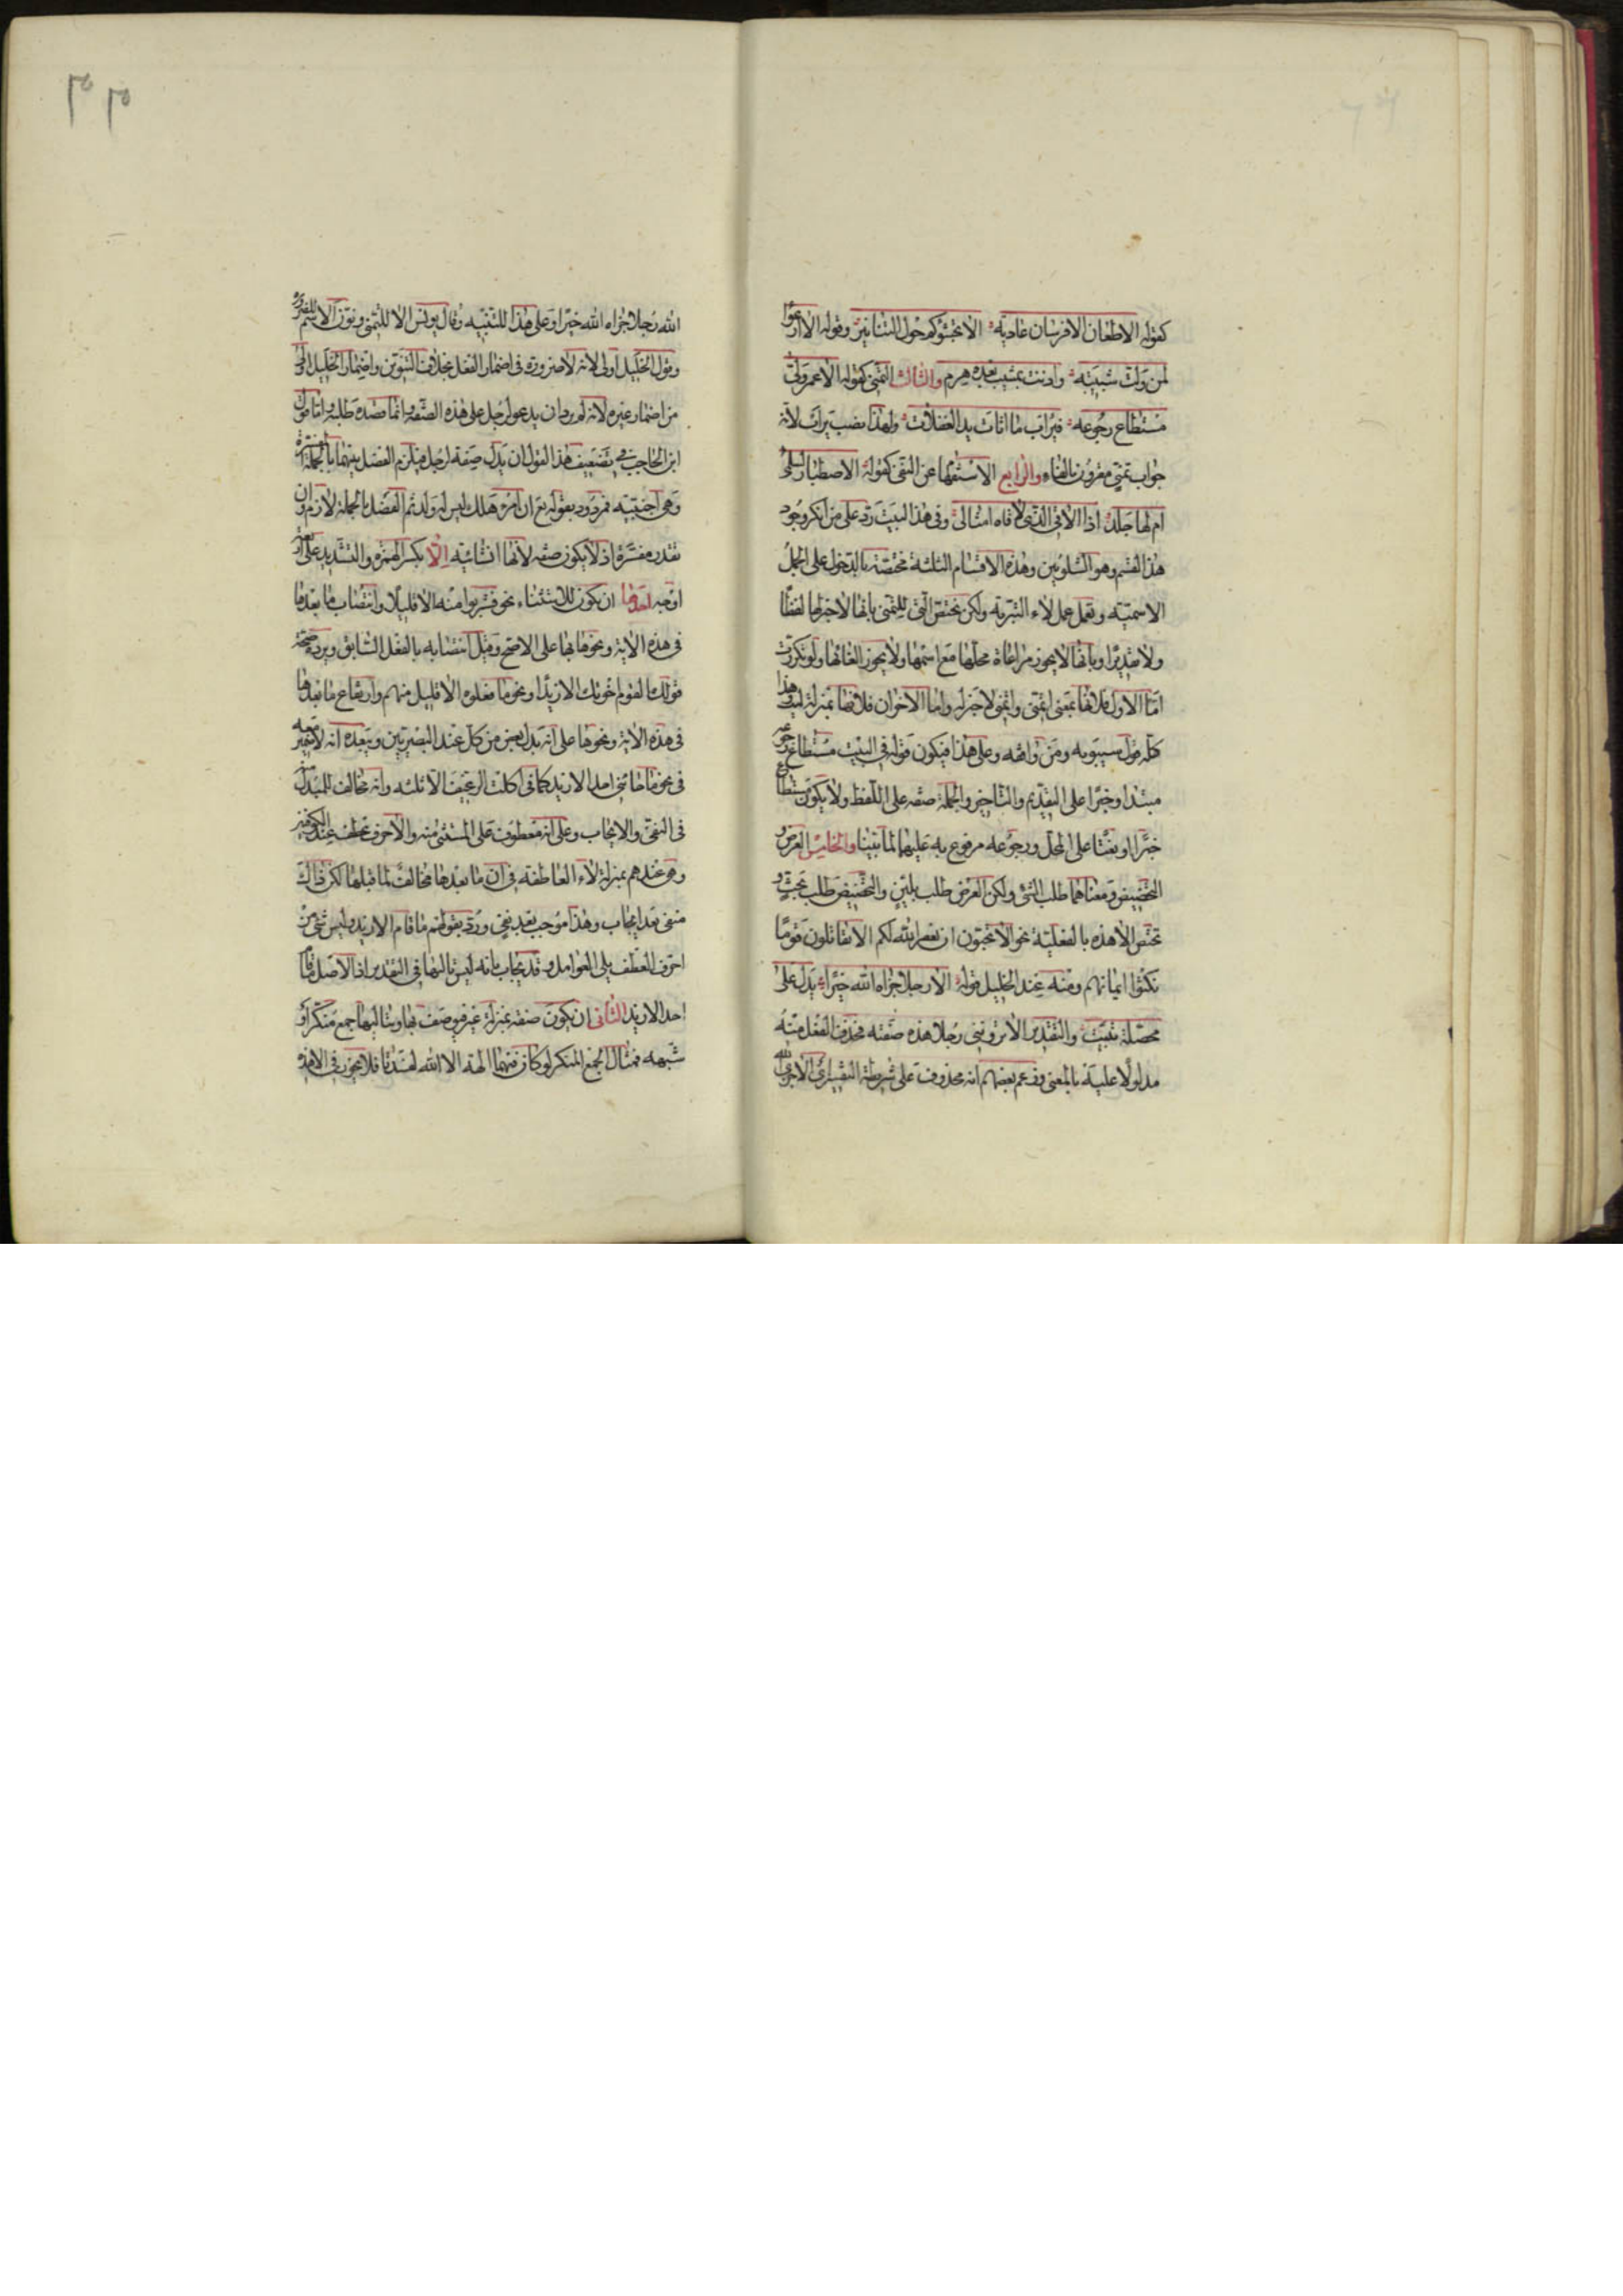 كقوله الاطعان الافرسان عادية الا تجشؤكم حول التنانير وقوله الا ارعوا
لمن ولت شبيبته واذنت بمشيب بعده هرم والثالث التمنى كقوله الا عمر ولى
مستطاع رجوعه فيرأب ما اثأت يد الغفلات ولهذا نصب يرأب لانه
جواب تمنى مقرون بالفاء والرابع الاستفهام عن النفى كقوله الا اصطبار لسلمى
ام لها جلد اذا الاقى الذى لاقاه امثالى وفى هذا البيت رد على من انكر وجود
هذا القسم وهو الشلوبين وهذه الاقسام الثلثة مختصة بالدخول على الجمل
الاسمية وتعمل عمل لاء التبرية ولكن تختص التى للتمنى بانها لا خبر لها لفظا
ولا تقديرا وبانها لا يجوز مراعاة محلها مع اسمها ولا يجوز الغائها ولو تكررت
اما الاول فلانها بمعنى اتمنى واتمنى لا خبر له واما الاخران فلانها بمنزلة ليت وهذا
كله قول سيبويه ومن وافقه وعلى هذا فيكون قوله فى البيت مستطاع رجوعه
مبتدا وخبرا على التقديم والتاخير والجملة صفة على اللفظ ولا يكون مستطاع
خبرا او نعتا على المحل ورجوعه مرفوع به عليهما لما بينا والخامس العرض و
التحضيض ومعناهما طلب الشئ ولكن العرض طلب بلين والتحضيض طلب بحث و
تختص الا هذه بالفعلية نحو الا تحبون ان يغفر الله لكم الا تقاتلون قوما
نكثوا ايمانهم ومنه عند الخليل قوله الا رجلا جزاه الله خيرا يدل على
محصلة تبيت والتقدير الا تروننى رجلا هذه صفته فحذف الفعل منه
مدلولا عليه بالمعنى وزعم بعضهم انه محذوف على شريطة التفسير اى الا جزى الله
الله رجلا جزاه الله خيرا وعلى هذا للتنبيه وقال يونس الا للتمنى ونون الاسم للضرورة
وقول الخليل اولى لانه لا ضرورة فى اضمار الفعل بخلاف التنوين واضمار الخليل اولى
من اضمار غيره لانه لم يرد ان يدعو لرجل على هذه الصفة وانما قصده طلبه واما قول
ابن الحاجب فى تضعيف هذا القول ان يدل صفة لرجل فيلزم الفصل بينهما بالجملة المفسرة
وهى اجنبية فمردود بقوله تع ان امرؤ هلك ليس له ولد ثم الفصل بالجملة لازم وان
تقدر مفسرة اذ لا يكون صفة لانها انشائية الا بكسر الهمزة والتشديد على اربعة
اوجه احدها ان يكون للاستثناء نحو فشربوا منه الا قليلا وانتصاب ما بعدها
فى هذه الاية ونحوها بها على الاصح وقيل انتصابه بالفعل السابق ويرده صحة
قولك القوم اخوتك الا زيدا ونحو ما فعلوه الا قليل منهم وارتفاع ما بعدها
فى هذه الاية ونحوها على انه بدل بعض من كل عند البصريين ويبعده انه لا ضمير معه
فى نحو ما جائنى احد الا زيد كما فى اكلت الرغيف الا ثلثه وانه مخالف للمبدل منه
فى النفى والايجاب وعلى انه معطوف على المستثنى منه والا حرف عطف عند الكوفيين
وهى عندهم بمنزلة لاء العاطفة فى ان ما بعدها مخالف لما قبلها لكن ذاك
منفى بعد ايجاب وهذا موجب بعد نفى ورد بقولهم ما قام الا زيد وليس شئ من
احرف العطف يلى العوامل وقد يجاب بانه ليس تاليها فى التقدير اذ الاصل ما قام
احد الا زيد الثانى ان يكون صفة بمنزلة غير فيوصف بها وبتاليها جمع منكر او
شبهه فمثال الجمع المنكر لو كان فيهما الهة الا الله لفسدتا فلا يجوز فى الا هذه